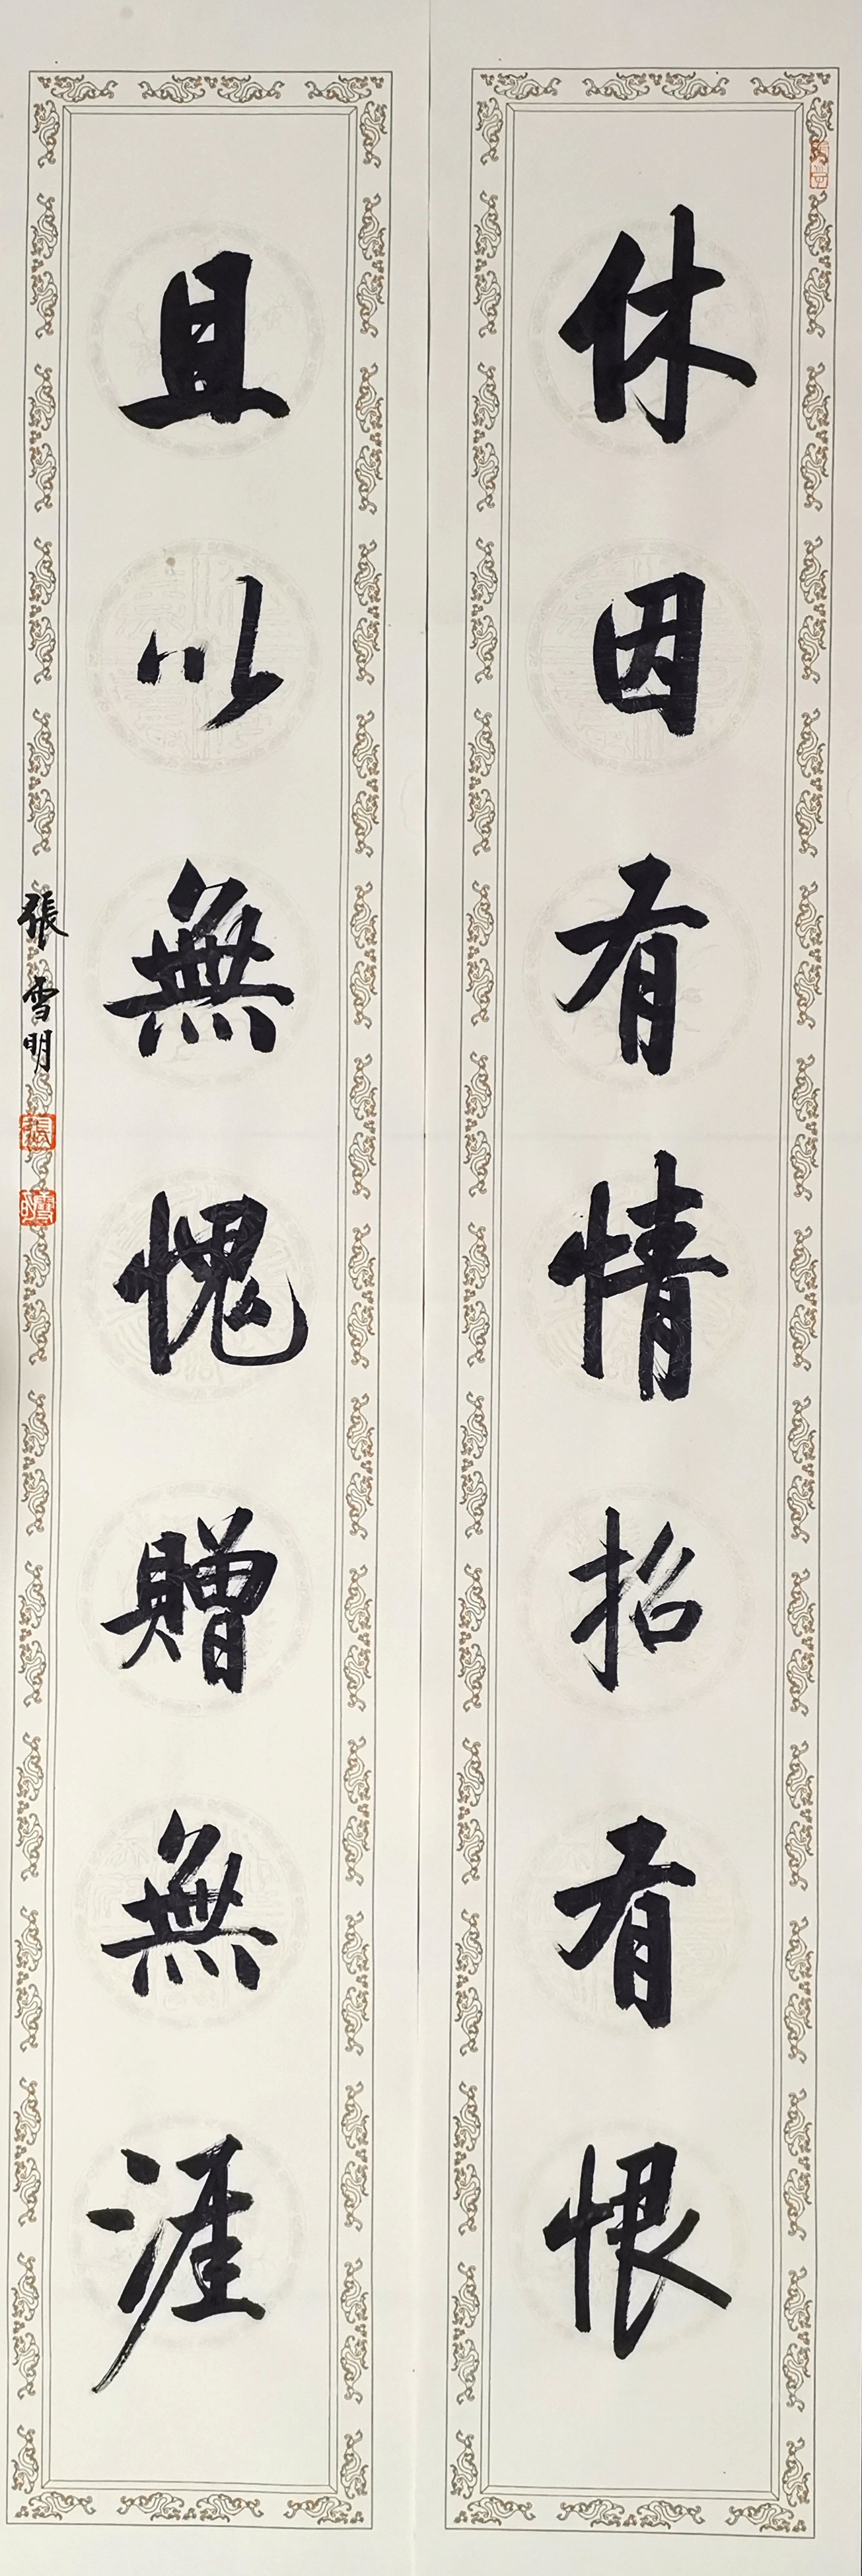 休因有情招有恨
且以無愧贈無涯
張雪明